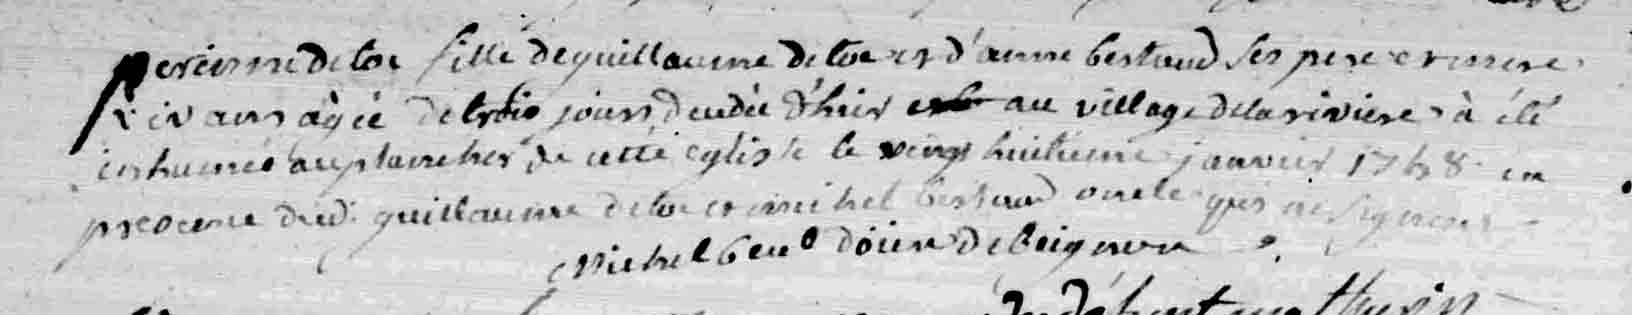 perinne deloe fille de guillaume deloe et d'anne bertaud ses pere et mere
vivans agée de trois jours decedée d'hier au village de la riviere a été
inhumée au plancher de cette eglise le vingt huitieme janvier 1748 en
presence dud. guillaume deloe et michel bertaud oncle qui ne signent
Michel doien de beignon